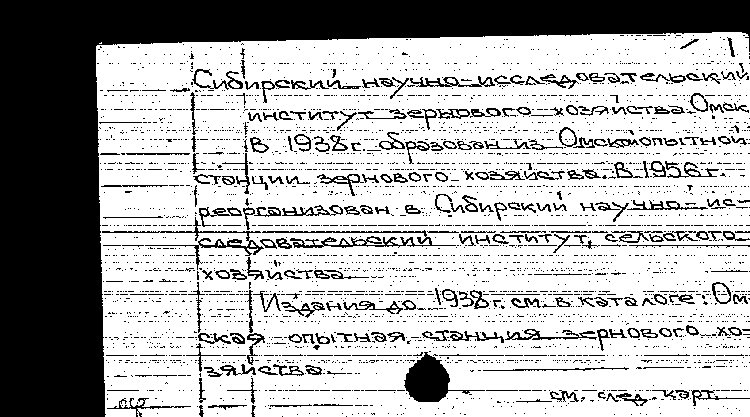 1
Сибирский научно-исследовательский
институт зернового хозяйства. Омск
В 1938 г. образован из Омской опытной
станции зернового хозяйства. В 1956 г.
реорганизован в Сибирский научно-ис-
следовательский институт сельского
хозяйства.
Издания до 1938 г. см. в каталоге: Ом-
ская опытная станция зернового хо-
зяйства.
см. след. карт.